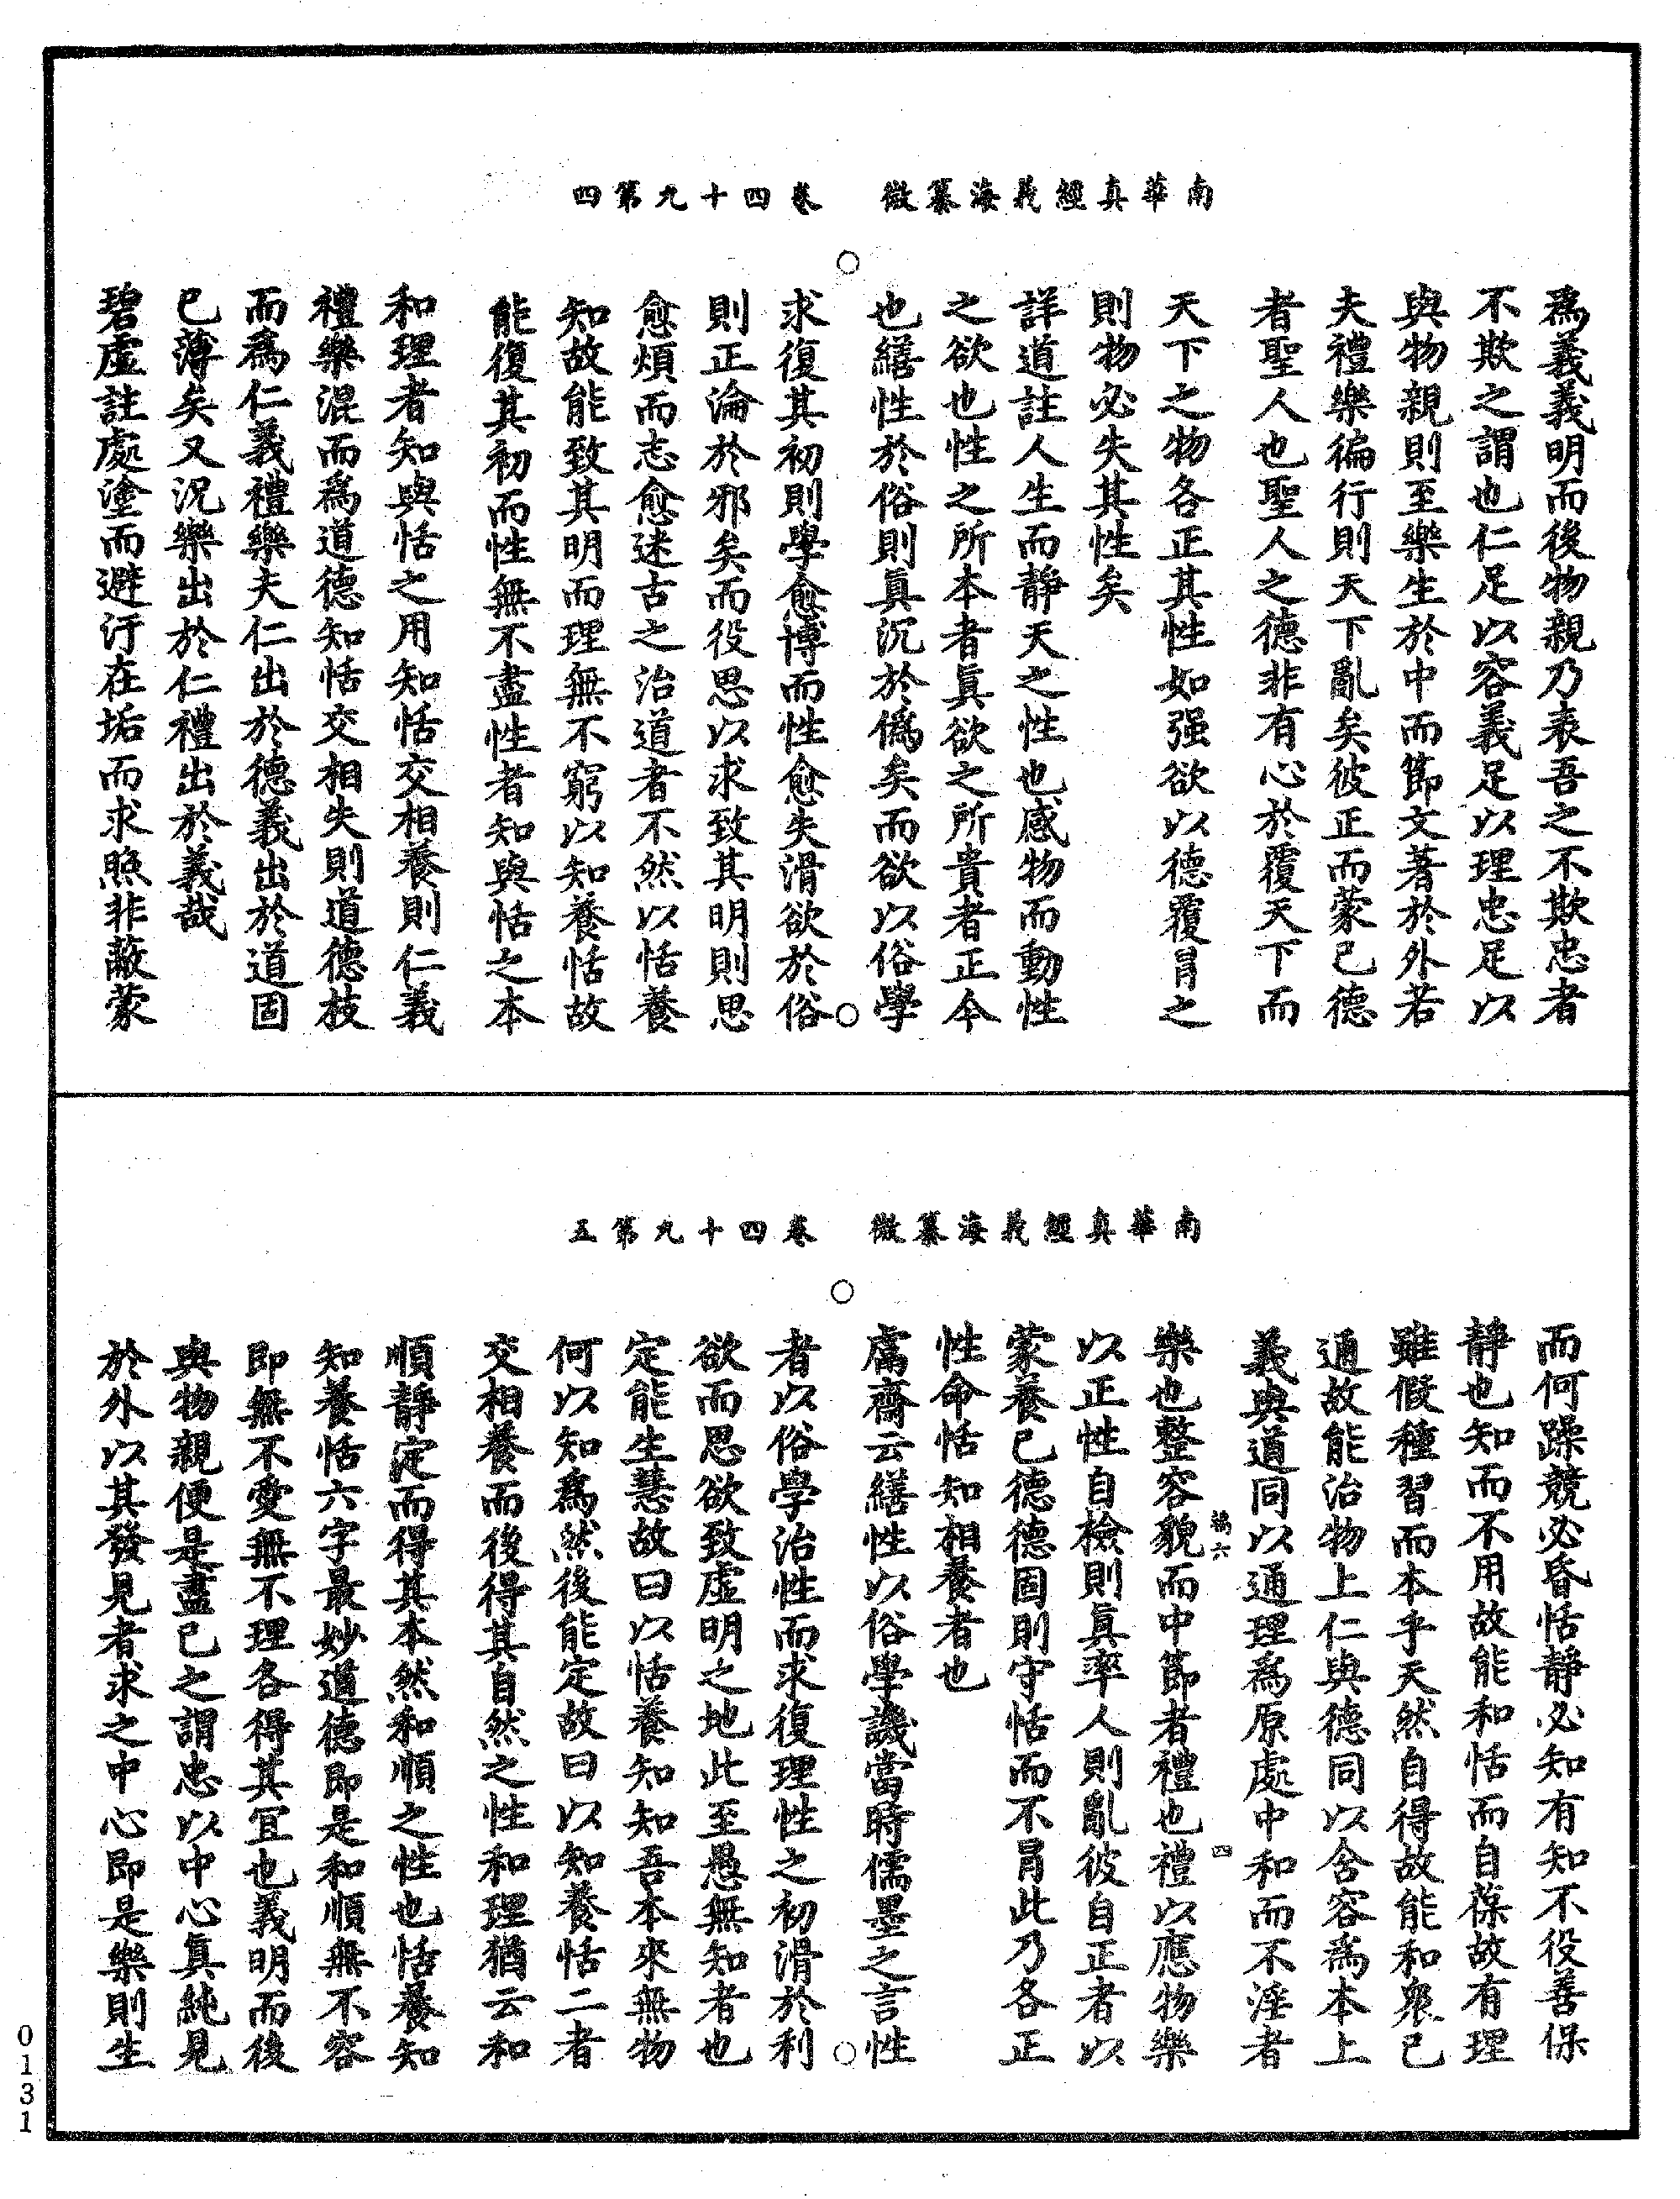 南華真經義海纂微　卷四十九第四
為義義明而後物親乃表吾之不欺忠者
不欺之謂也仁足以容義足以理忠足以
與物親則至樂生於中而節文著於外若
夫禮樂徧行則天下亂矣彼正而蒙己德
者聖人也聖人之德非有心於覆天下而
天下之物各正其性如强欲以德覆冒之
則物必失其性矣
詳道註人生而靜天之性也感物而動性
之欲也性之所本者眞欲之所貴者正今
也繕性於俗則眞沉於僞矣而欲以俗學
求復其初則學愈博而性愈失滑欲於俗
則正淪於邪矣而役思以求致其明則思
愈煩而志愈迷古之治道者不然以恬養
知故能致其明而理無不窮以知養恬故
能復其初而性無不盡性者知與恬之本
和理者知與恬之用知恬交相養則仁義
禮樂混而爲道德知恬交相失則道德枝
而爲仁義禮樂夫仁出於德義出於道固
已薄矣又況樂出於仁禮出於義哉
碧虛註處塗而避汙在垢而求照非蔽蒙
南華真經義海纂微　卷四十九第五
而何躁競必昏恬靜必知有知不役善保
靜也知而不用故能和恬而自葆故有理
雖假種習而本乎天然自得故能和衆已
通故能治物上仁與德同以含容爲本上
義與道同以通理爲原處中和而不淫者
樂也整容貌而中節者禮也禮以應物樂
以正性自檢則眞率人則亂彼自正者以
蒙養已德德固則守恬而不冐此乃各正
性命恬知相養者也
鬳齋云繕性以俗學譏當時儒墨之言性
者以俗學治性而求復理性之初滑於利
欲而思欲致虛明之地此至愚無知者也
定能生慧故曰以恬養知知吾本來無物
何以知爲然後能定故曰以知養恬二者
交相養而後得其自然之性和理猶云和
順靜定而得其本然和順之性也恬養知
知養恬六字最妙道德即是和順無不容
即無不愛無不理各得其宜也義明而後
與物親便是盡己之謂忠以中心眞純見
於外以其發見者求之中心即是樂則生
四
0131